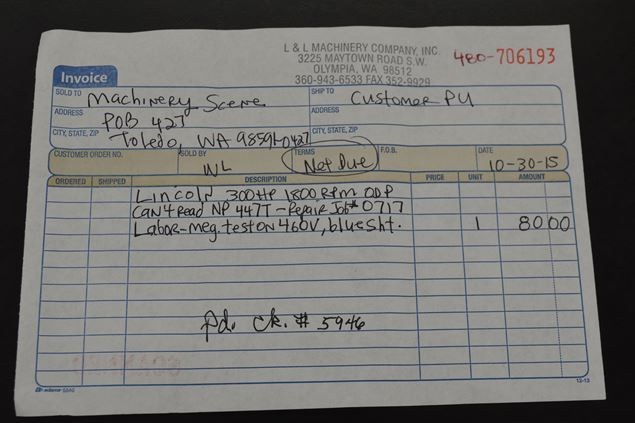 L & L MACHINERY COMPANY, INC.
3225 MAYTOWN ROAD S.W.
OLYMPIA, WA 98512
360-943-6533 FAX 352-9929
480-706193
Invoice
SOLD TO Machinery Scene SHIP TO Customer PU
ADDRESS POB 427 ADDRESS
CITY, STATE, ZIP Toledo, WA 98591-0427 CITY, STATE, ZIP
CUSTOMER ORDER NO. SOLD BY WL TERMS Net Due F.O.B. DATE 10-30-15
ORDERED SHIPPED DESCRIPTION PRICE UNIT AMOUNT
Lincoln 300HP 1800RPM ODP
CAN't Read NP 447T - Repair Job# 0717
Labor-meg.test on 460V, blue sht. 1 80 00
Pd. ck. # 5946
adams 5840 12-13